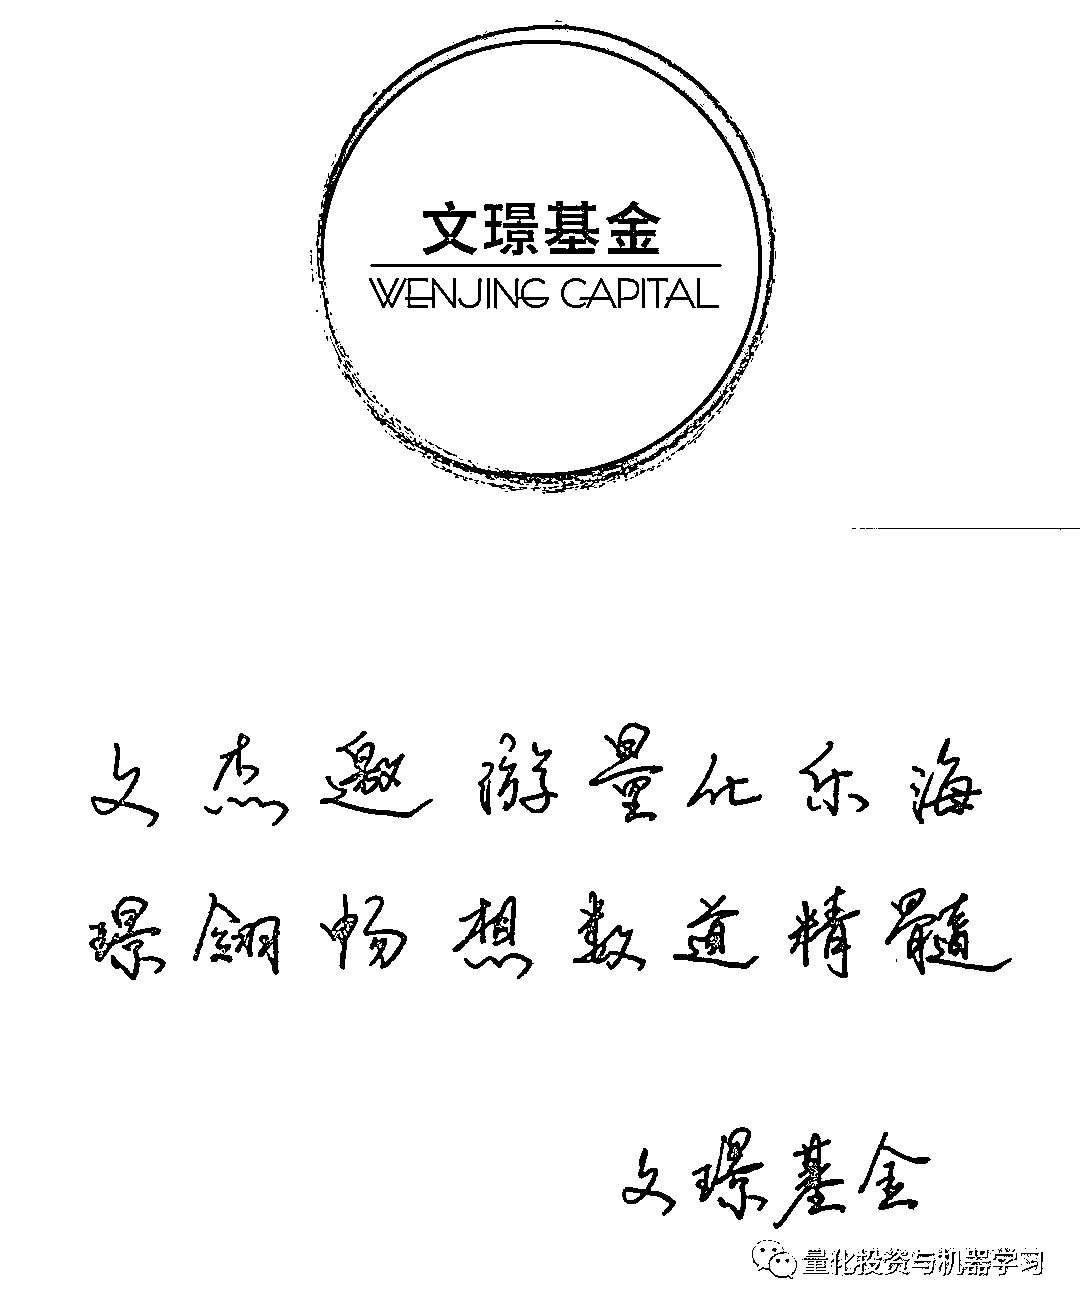 文璟基金
WENJING CAPITAL
文杰邀游量化乐海
璟翎畅想数道精髓
文璟基金
量化投资与机器学习